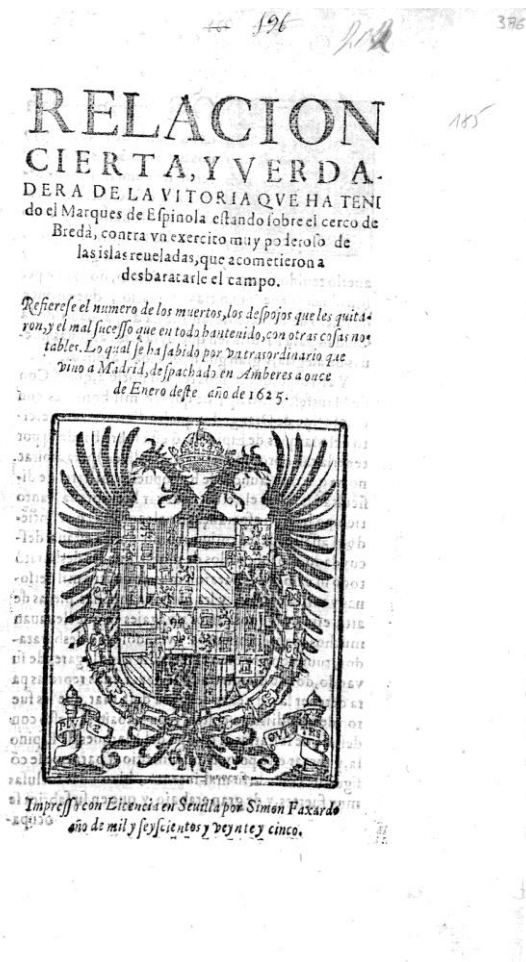 196
376
185
RELACION
CIERTA, Y VERDA-
DERA DE LA VITORIA QVE HA TENI
do el Marques de Espinola estando sobre el cerco de
Bredà, contra vn exercito muy poderoso de
las islas reueladas, que acometieron a
desbaratarle el campo.
Refierese el numero de los muertos, los despojos que les quita-
ron, y el mal sucesso que en todo han tenido, con otras cosas no-
tables. Lo qual se ha sabido por vn trasordinario que
vino a Madrid, despachado en Amberes a once
de Enero deste año de 1625.
PLVS
VLTRE
Impresso con Licencia en Seuilla por Simon Faxardo
año de mil y seyscientos y veynte y cinco.